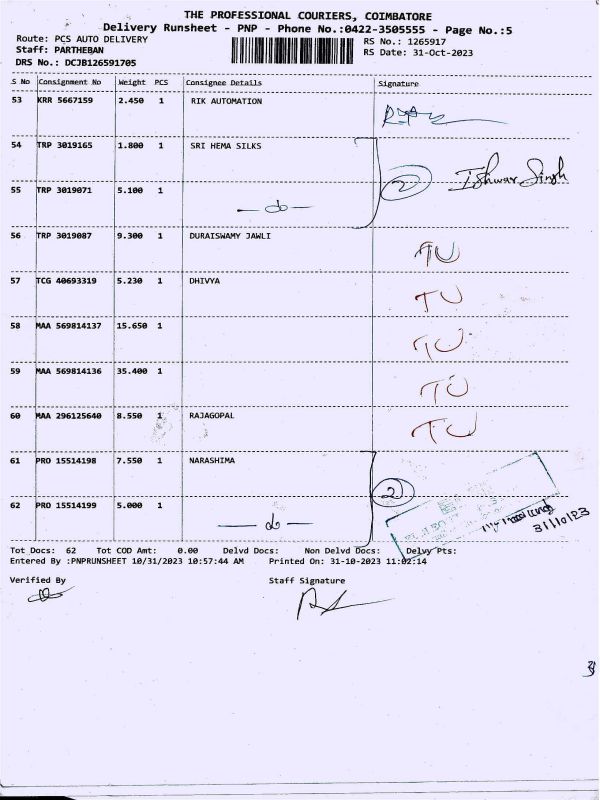 THE PROFESSIONAL COURIERS, COIMBATORE
Delivery Runsheet - PNP - Phone No.:0422-3505555 - Page No.:5
Route: PCS AUTO DELIVERY RS No.: 1265917
Staff: PARTHEBAN RS Date: 31-Oct-2023
DRS No.: DCJB126591705
S No Consignment No Weight PCS Consignee Details Signature
53 KRR 5667159 2.450 1 RIK AUTOMATION
54 TRP 3019165 1.800 1 SRI HEMA SILKS
2 Ishwar Singh
55 TRP 3019071 5.100 1 — do —
56 TRP 3019087 9.300 1 DURAISWAMY JAWLI TU
57 TCG 40693319 5.230 1 DHIVYA TU
58 MAA 569814137 15.650 1 TU
59 MAA 569814136 35.400 1 TU
60 MAA 296125640 8.550 1 RAJAGOPAL TU
61 PRO 15514198 7.550 1 NARASHIMA
2
62 PRO 15514199 5.000 1 — do — 31/10/23
Tot Docs: 62 Tot COD Amt: 0.00 Delvd Docs: Non Delvd Docs: Delvy Pts:
Entered By :PNPRUNSHEET 10/31/2023 10:57:44 AM Printed On: 31-10-2023 11:02:14
Verified By Staff Signature